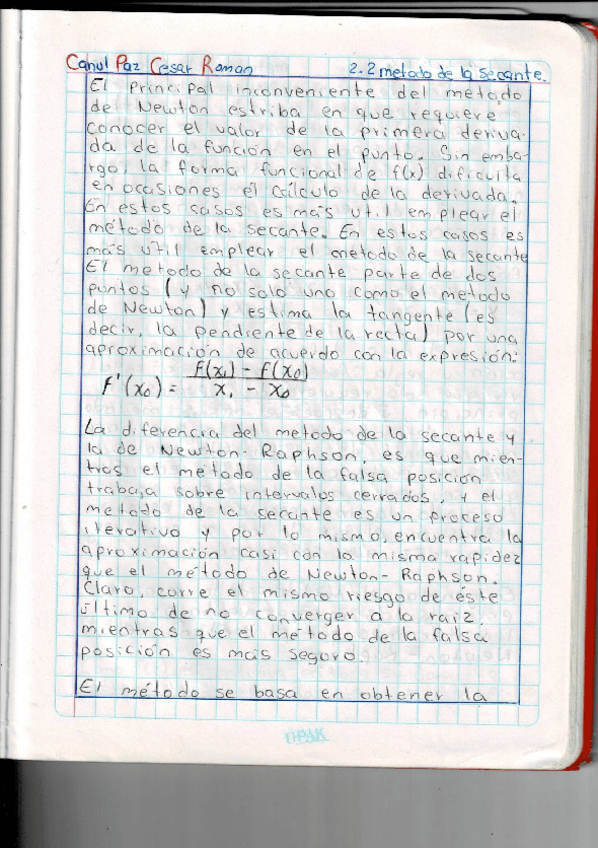 Canul Paz Cesar Roman 2.2 metodo de la secante.
El principal inconveniente del metodo
de Newton estriba en que requiere
conocer el valor de la primera deriva-
da de la función en el punto. Sin emba-
rgo, la forma funcional de f(x) dificulta
en ocasiones el cálculo de la derivada.
En estos casos es más util emplear el
método de la secante. En estos casos es
más útil emplear el metodo de la secante
El metodo de la secante parte de dos
puntos (y no solo uno como el metodo
de Newton) y estima la tangente (es
decir, la pendiente de la recta) por una
aproximación de acuerdo con la expresión:
f'(x₀) = f(x₁) - f(x₀) / x₁ - x₀
La diferencia del metodo de la secante y
la de Newton-Raphson, es que mien-
tras el metodo de la falsa posición
trabaja sobre intervalos cerrados, y el
metodo de la secante es un proceso
iterativo y por lo mismo, encuentra la
aproximación casi con la misma rapidez
que el método de Newton-Raphson.
Claro, corre el mismo riesgo de éste
último de no converger a la raiz.
mientras que el método de la falsa
posición es mas seguro.
El método se basa en obtener la